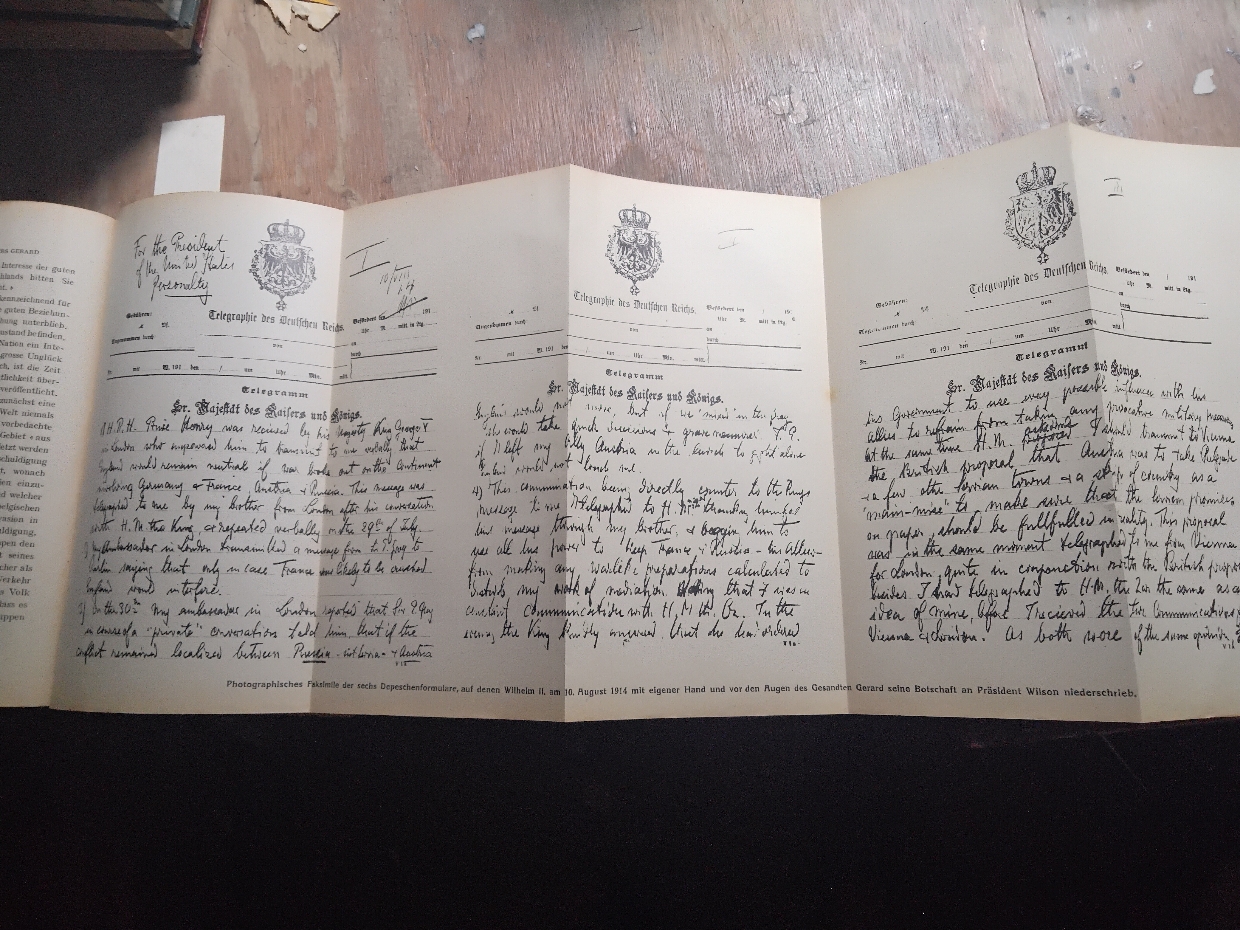 SS GERARD
Interesse der guten
hlands bitten Sie
ht.»
kennzeichnend für
e guten Beziehun-
bung unterblieb,
ustand befinden,
Natien ein Inte-
grosse Unglück
ch, ist die Zeit
tlichkeit über-
veröffentlicht.
nächst eine
Welt niemals
vorbedachte
Gebiet «aus
etzt werden
schuldigung
t, wonach
en einzu-
d welcher
elgischen
vasion in
ldigung,
ppen den
t seines
cher als
Verkehr
s Volk
dass es
uppen
For the President
of the United States
personally
I
10/VIII
14
Telegraphie des Deutschen Reichs.
Befördert den / 191
Gebühren:
Telegramm
Sr. Majestät des Kaisers und Königs.
H.R.H. Prince Henry was received by his Majesty King George V
in London who empowered him to transmit to me verbally that
England would remain neutral if war broke out on the Continent
involving Germany & France, Austria & Russia. This message was
telegraphed to me by my brother from London after his conversation
with H.M. the King, & repeated verbally on the 29th of July.
My Ambassador in London transmitted a message from Sir E. Grey to
Berlin saying that only in case France was likely to be crushed
England would interfere.
On the 30th my ambassador in London reported that Sir E. Grey
in course of a "private" conversation told him, that if the
conflict remained localized between Russia - not Serbia - & Austria
II
Telegraphie des Deutschen Reichs.
Befördert den / 191
Telegramm
Sr. Majestät des Kaisers und Königs.
England would not move, but if we "mixed" in the fray
she would take quick decisions & grave measures. I.e.
if I left my ally Austria in the lurch to fight alone
England would not touch me.
4) This communication being directly counter to the King's
message to me I telegraphed to H.M. thanking
kind message through my brother, & begging him to
use all his power to keep France & Russia - his Allies-
from making any warlike preparations calculated to
disturb my work of mediation, stating that I was in
constant communication with H.M. the Czar. In the
evening the King kindly answered, that he had ordered
III
Telegraphie des Deutschen Reichs.
Befördert den / 191
Gebühren:
Telegramm
Sr. Majestät des Kaisers und Königs.
his Government to use every possible influence with his
allies to refrain from taking any provocative military measures
at the same time H.M. I should transmit to Vienna
the British proposal that Austria was to take Belgrade
& a few other Servian towns & a strip of country as a
"main-mise" to make sure that the Servian promises
on paper should be fullfulled in reality. This proposal
was in the same moment telegraphed to me from Vienna
for London, quite in conjunction with the British proposal
besides I had telegraphed to H.M. the Czar the same as an
idea of mine, before I recieved the two Communications from
Vienna & London. As both were of the same opinion,
Photographisches Faksimile der sechs Depeschenformulare, auf denen Wilhelm II. am 10. August 1914 mit eigener Hand und vor den Augen des Gesandten Gerard seine Botschaft an Präsident Wilson niederschrieb.